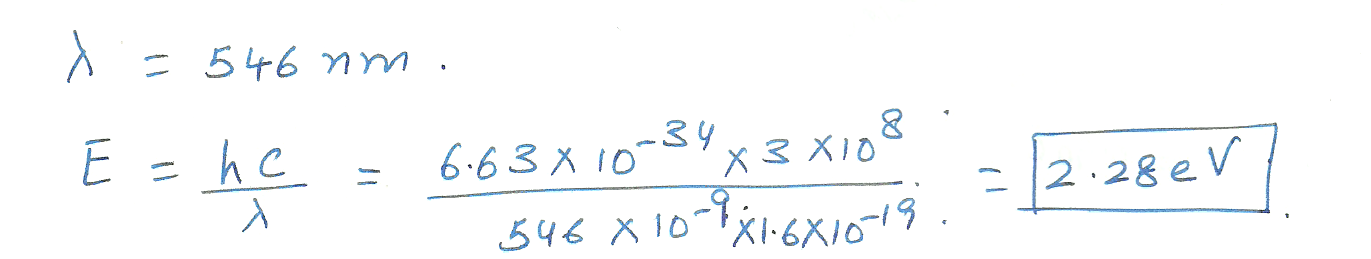 λ = 546 nm.
E = hc/λ = 6.63 × 10⁻³⁴ × 3 × 10⁸ / 546 × 10⁻⁹ × 1.6 × 10⁻¹⁹ = 2.28 eV.